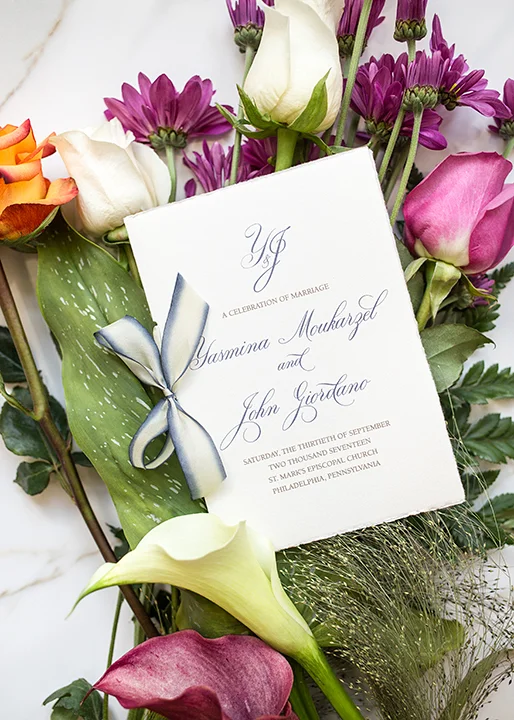 Y&J
A CELEBRATION OF MARRIAGE
Yasmina Moukarzel
and
John Giordano
SATURDAY, THE THIRTIETH OF SEPTEMBER
TWO THOUSAND SEVENTEEN
ST. MARK'S EPISCOPAL CHURCH
PHILADELPHIA, PENNSYLVANIA